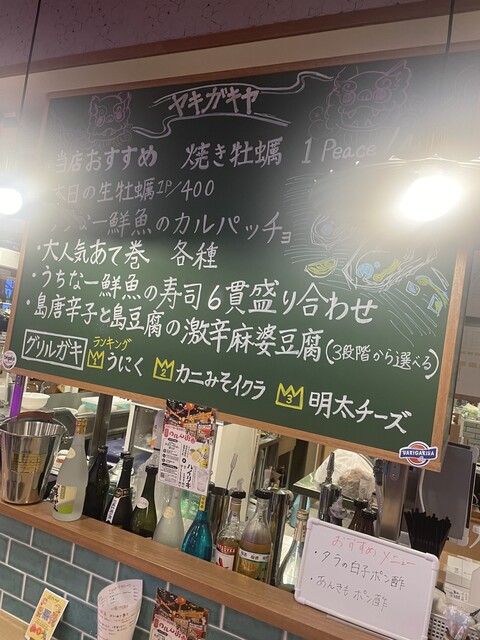 ヤキガキヤ
当店おすすめ 焼き牡蠣 1 Peace
本日の生牡蠣 1P/400
うちなー鮮魚のカルパッチョ
・大人気あて巻 各種
・うちなー鮮魚の寿司6貫盛り合わせ
・島唐辛子と島豆腐の激辛麻婆豆腐(3段階から選べる)
グリルガキ ランキング 1 うにく 2 カニみそイクラ 3 明太チーズ
YAKIGAKIYA
おすすめメニュー
・タラの白子ポン酢
・あんきもポン酢